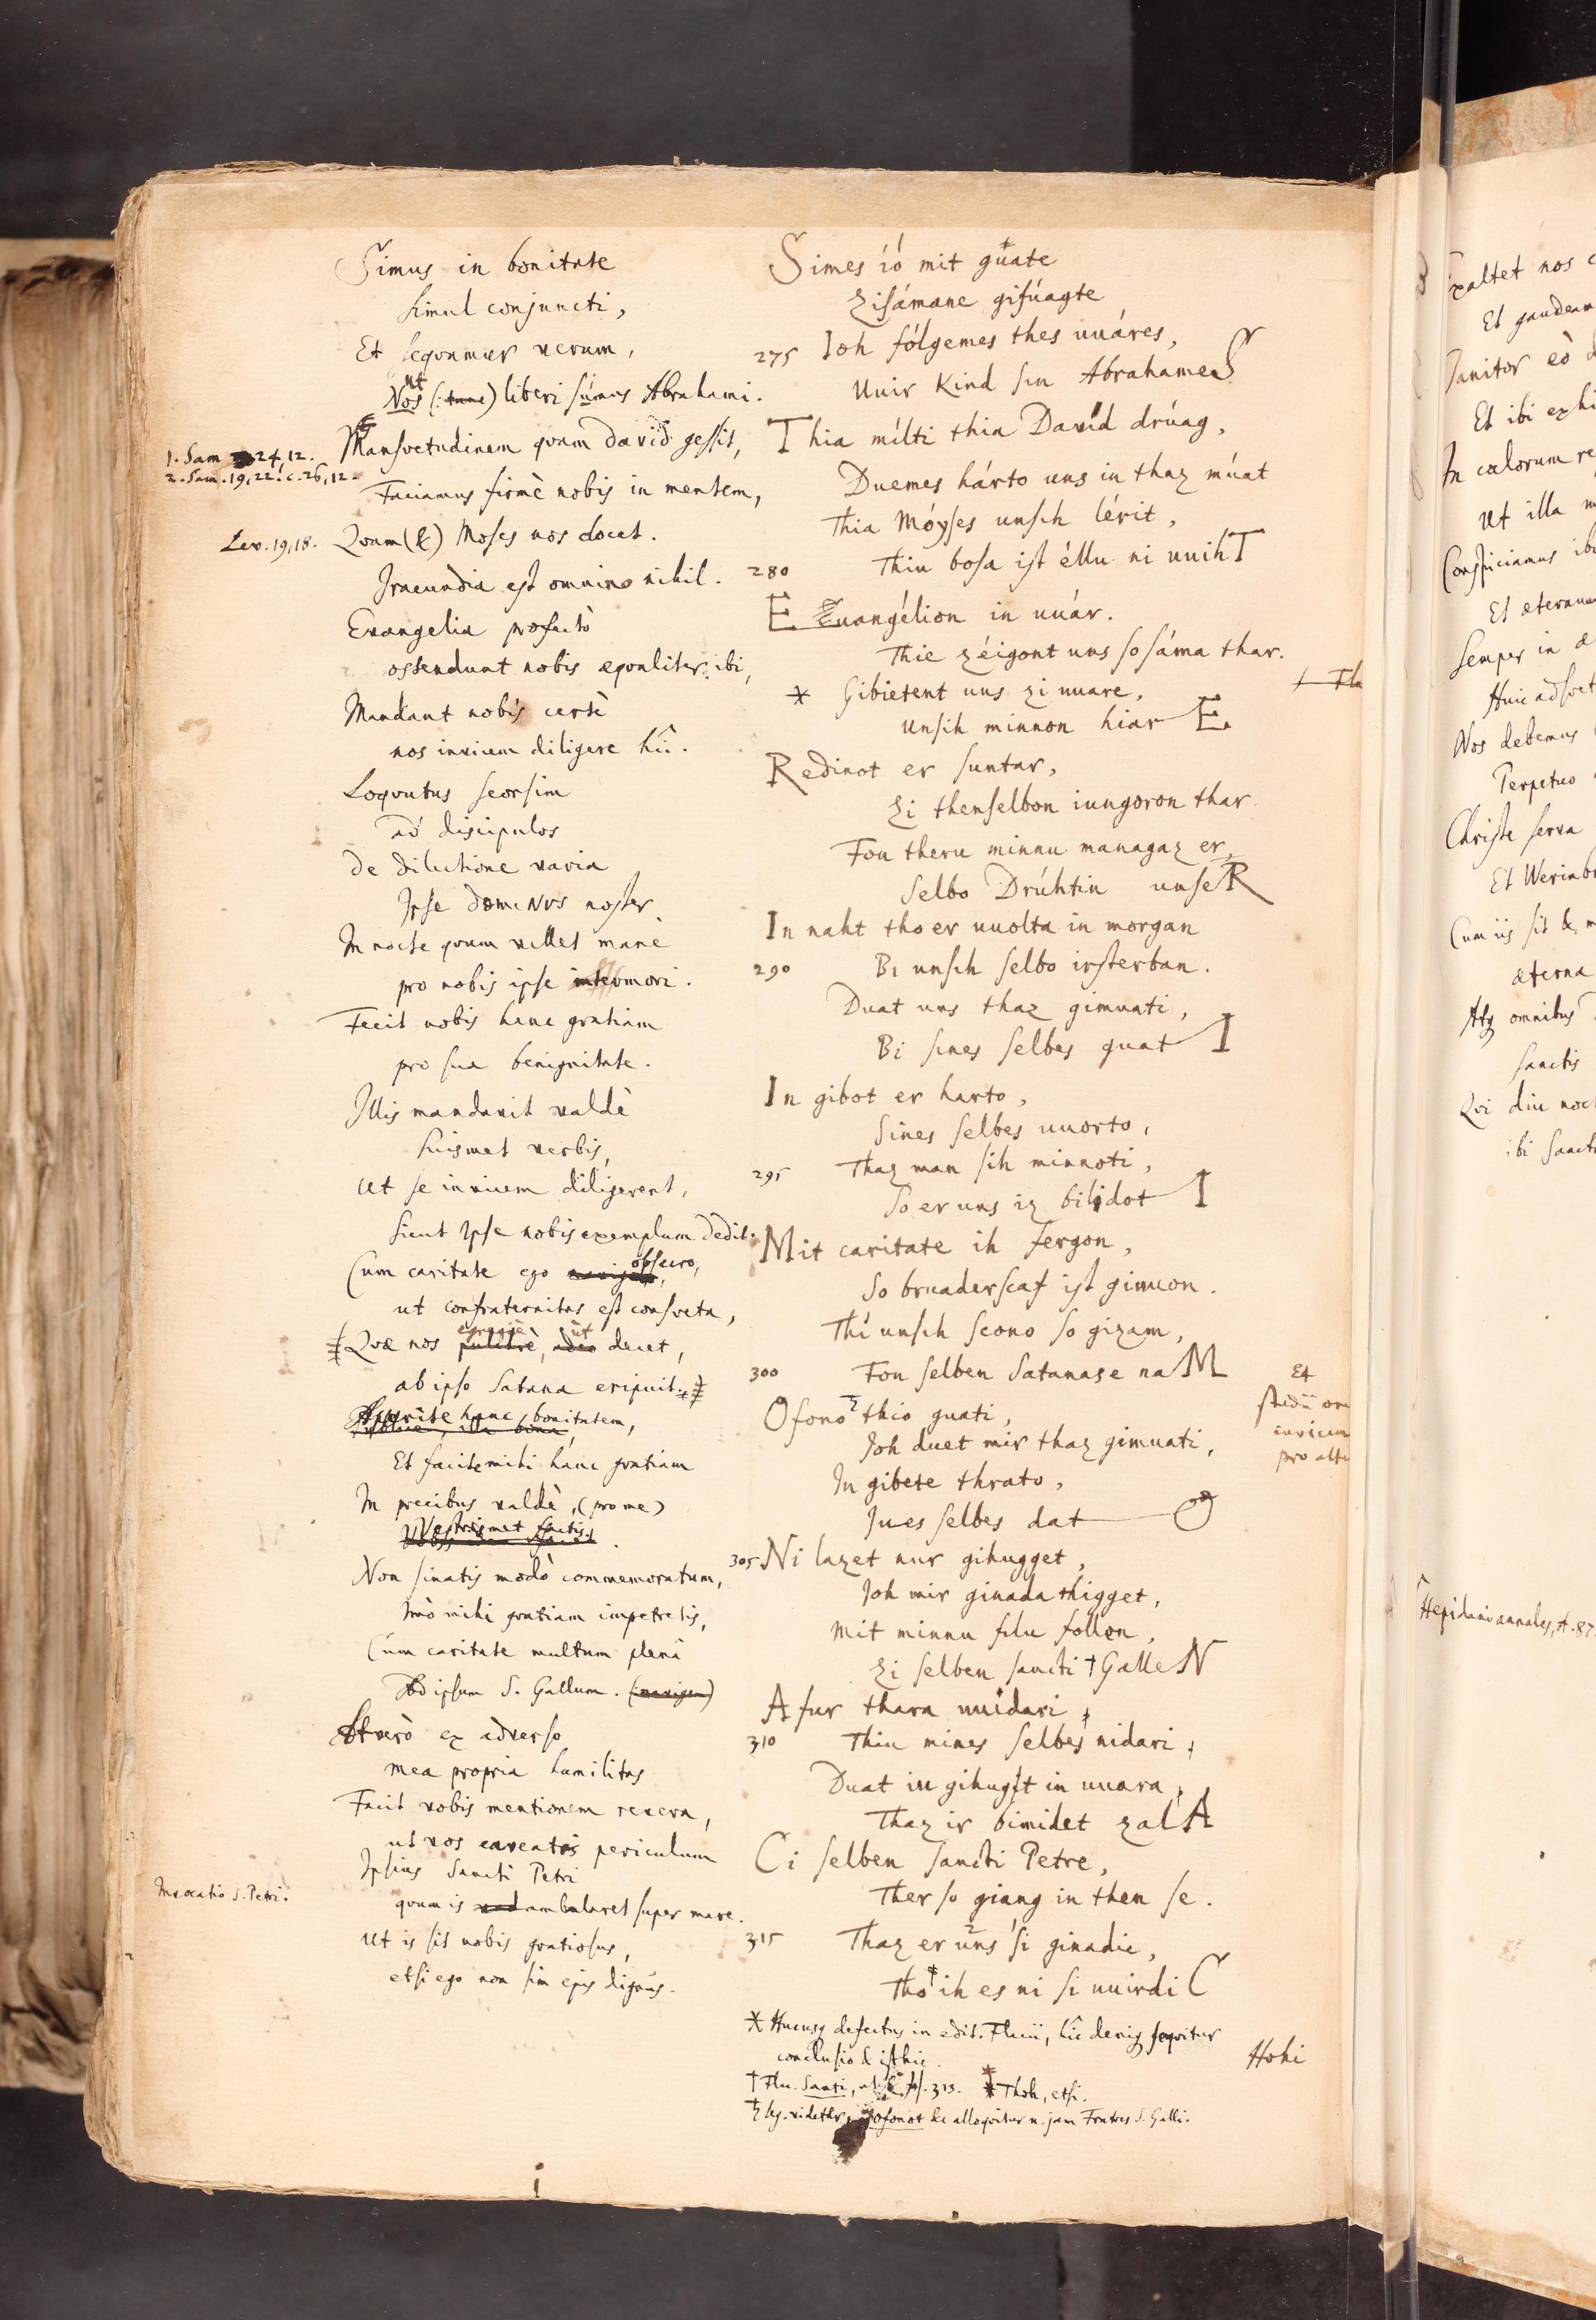 Simus in bonitate
simul conjuncti,
Et sequamur verum,
ut
Nos (: tunc) liberi simus Abrahami.
Mansvetudinem quam David gessit,
1. Sam 24, 12.
2. Sam. 19, 22. c. 26, 12.
Faciamus firmè nobis in mentem,
Lev. 19, 18.
Quam (&) Moses nos docet.
Iracundia est omnino nihil.
Evangelia profectò
ostendunt nobis aequaliter ibi,
Mandant nobis certè
nos invicem diligere hîc.
Loquutus seorsim
ad discipulos
De dilectione varia
Ipse domiNVS noster
In nocte quum vellet manè
pro nobis ipse mori.
Fecit nobis hanc gratiam
pro sua benignitate.
Illis mandavit valdè
suismet verbis,
ut se invicem diligerent,
sicut ipse nobis exemplum dedit.
Cum caritate ego obsecro,
ut confraternitas est consveta,
Quæ nos egregiè, ut decet,
ab ipso Satana eripuit.
Aperite hanc bonitatem,
Et facite mihi hanc gratiam
In precibus valdè, (pro me)
Vestrismet factis.
Non sinatis modò commemoratum,
Imò mihi gratiam impetretis,
Cum caritate multum plenâ
Ad ipsum S. Gallum. (navigem)
At verò ex adverso
mea propria humilitas
Facit vobis mentionem revera,
ut vos caveatis periculum
Ipsius Sancti Petri
Invocatio S. Petri.
quum is ambularet super mare.
Ut is sit nobis gratiosus,
etsi ego non sim ejus dignus.
Simes ió mit guate
Zisámane gifúagte
275 Ioh fólgemes thes uuáres,
Uuir Kind sin AbrahameS
Thia mílti thia David drúag,
Duemes hárto uns in thaz múat
Thia Móyses unsih lérit,
280 Thiu bosa ist éllu ni uuihT
E Euangélion in uuár.
Thie zéigont uns so sáma thar.
* Gibietent uns zi uuare,
Unsih minnon hiar E.
Redinot er suntar,
Zi thenselbon iungoron thar
Fon theru minnu managaz er,
Selbo Drúhtin unseR
In naht tho er uuolta in morgan
290 Bi unsih selbo irsterban.
Duat uns thaz gimuati,
Bi sines selbes guat I
In gibot er harto,
Sines selbes uuorto,
295 Thaz man sih minnoti,
So er uns iz bilidot I
Mit caritate ih fergon,
So bruaderscaf ist giuuon.
Thí unsih scono so gizam,
300 Fon selben Satanase naM
Ofono thio guati,
Joh duet mir thaz gimuati,
In gibete thrato,
Jues selbes dat O
305 Ni lazet nur gihugget,
Joh mir ginada thigget,
Mit minnu filu follon,
Zi selben sancti † GalleN
Afur thara uuidari,
310 Thiu mines selbes nidari,
Duat iu gihugit in uuara,
Thaz ir bimidet zalA
Ci selben sancti Petre,
Ther so giang in then se.
315 Thaz er uns si ginadie,
Tho ih es ni si uuirdi C
* Hucusq defectus in edit. Flacii, hîc deniq sequitur
conclusio & isthic.
† Flu. Santi, 313. * Thoh, etsi.
leg. videtur, ofonot he alloquitur n. jam Fratres S. Galli.
Hohi
Et
invicem
pro alte
Exaltet nos
Et gaudeam
Janitor eò
Et ibi exhi
In cælorum re
Ut illa
Conspiciamus ibi
Et æternum
Semper in æ
Huic adsvet
Nos debemus
Perpetuo
Christe serva
Et Werinb
Cum iis sit &
æterna
Atq omnibus
Sanctis
Qvi diu noct
ibi Sancti
Hepidani annales, A. 87